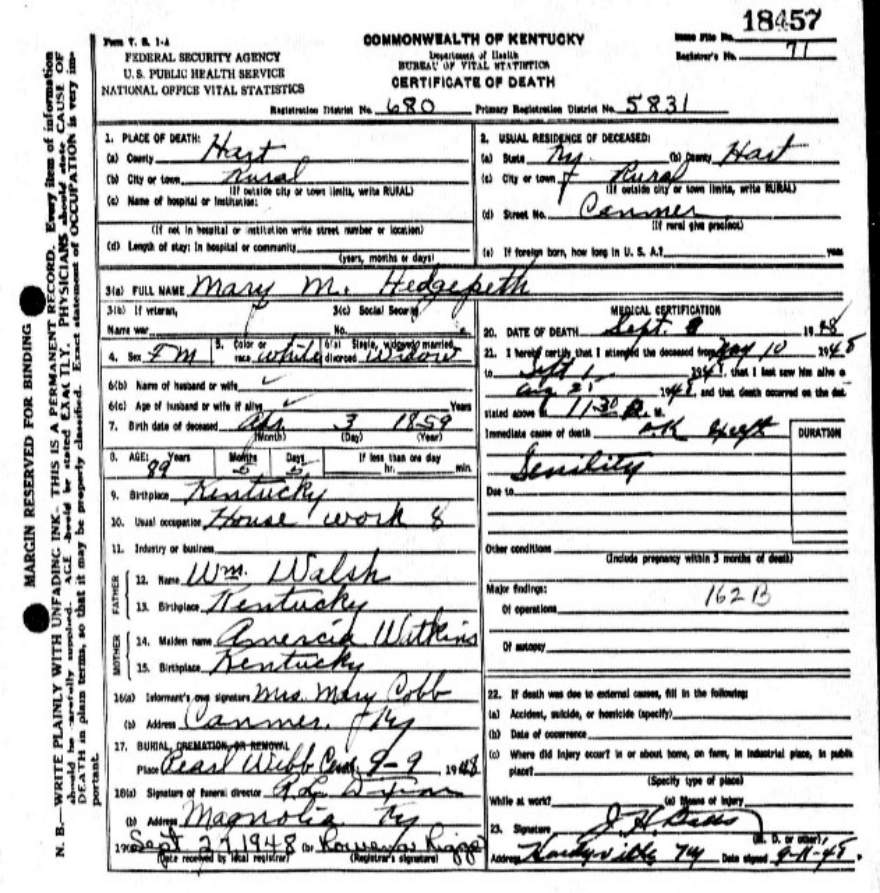 18457
Form V. S. 1-A
FEDERAL SECURITY AGENCY
U. S. PUBLIC HEALTH SERVICE
NATIONAL OFFICE VITAL STATISTICS
COMMONWEALTH OF KENTUCKY
Department of Health
BUREAU OF VITAL STATISTICS
CERTIFICATE OF DEATH
State File No.
Registrar's No. 71
Registration District No. 680 Primary Registration District No. 5831
MARGIN RESERVED FOR BINDING
N. B.—WRITE PLAINLY WITH UNFADING INK. THIS IS A PERMANENT RECORD. Every item of information
should be carefully supplied. AGE should be stated EXACTLY. PHYSICIANS should state CAUSE OF
DEATH in plain terms, so that it may be properly classified. Exact statement of OCCUPATION is very im-
portant.
1. PLACE OF DEATH:
(a) County Hart
(b) City or town Rural
(If outside city or town limits, write RURAL)
(c) Name of hospital or institution:
(If not in hospital or institution write street number or location)
(d) Length of stay: In hospital or community
(years, months or days)
2. USUAL RESIDENCE OF DECEASED:
(a) State Ky. (b) County Hart
(c) City or town Rural
(If outside city or town limits, write RURAL)
(d) Street No. Canmer
(If rural give precinct)
(e) If foreign born, how long in U. S. A.? years
3(a) FULL NAME Mary M. Hedgepeth
3(b) If veteran, 3(c) Social Security
Name war No.
4. Sex F M 5. Color or race white 6(a) Single, widowed, married, divorced Widow
6(b) Name of husband or wife
6(c) Age of husband or wife if alive Years
7. Birth date of deceased Apr. 3 1859
(Month) (Day) (Year)
8. AGE: Years Months Days If less than one day
89 5 5 hr. min.
9. Birthplace Kentucky
10. Usual occupation House work
11. Industry or business
FATHER
12. Name Wm. Walsh
13. Birthplace Kentucky
MOTHER
14. Maiden name Amercia Witkins
15. Birthplace Kentucky
16(a) Informant's own signature Mrs. Mary Cobb
(b) Address Canmer, Ky
17. BURIAL, CREMATION, OR REMOVAL
Place Pearl Webb Cem. 9-9 1948
18(a) Signature of funeral director
(b) Address Magnolia Ky
19(a) Sept 27, 1948 (b) Rowena
(Date received by local registrar) (Registrar's signature)
MEDICAL CERTIFICATION
20. DATE OF DEATH Sept. 8 1948
21. I hereby certify, that I attended the deceased from May 10 1948
to Sept 1 1948, that I last saw him alive o
Aug 25 1948, and that death occurred on the dat
stated above at 11:30 M.
Immediate cause of death O.K. Except
DURATION
Senility
Due to
Other conditions
(Include pregnancy within 3 months of death)
Major findings: 162B
Of operations
Of autopsy
22. If death was due to external causes, fill in the following:
(a) Accident, suicide, or homicide (specify)
(b) Date of occurrence
(c) Where did injury occur? in or about home, on farm, in industrial place, in public
place?
(Specify type of place)
While at work? (e) Means of injury
23. Signature J. H.
(M. D. or other)
Address Hardyville Ky Date signed 9-11-48.